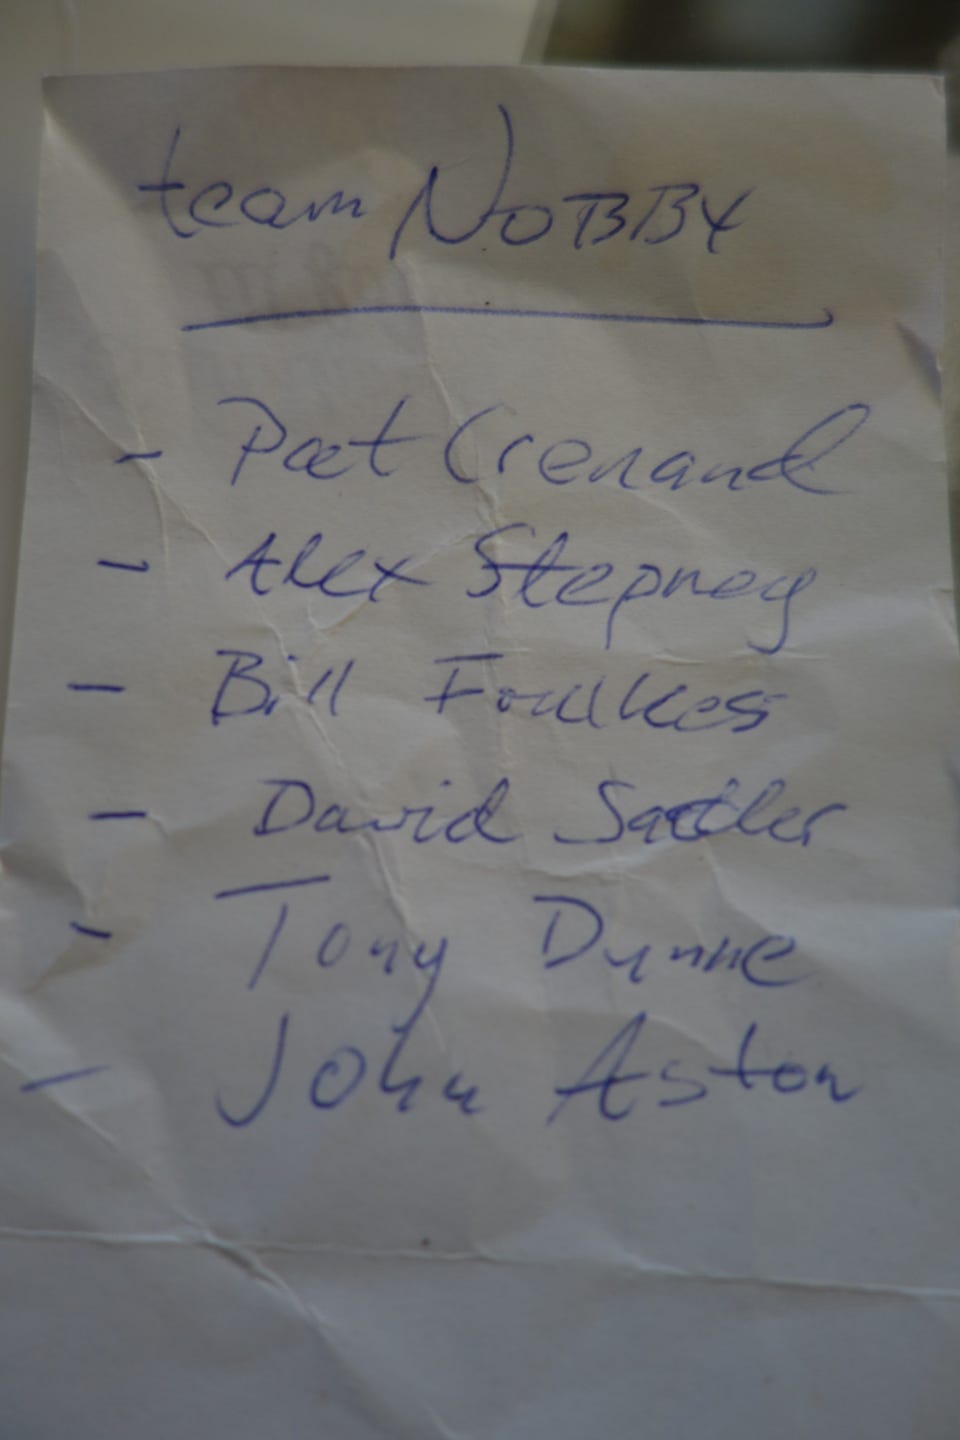 team NOBBY
- Pat Crenand
- Alex Stepney
- Bill Foulkes
- David Sadler
- Tony Dunne
- John Aston